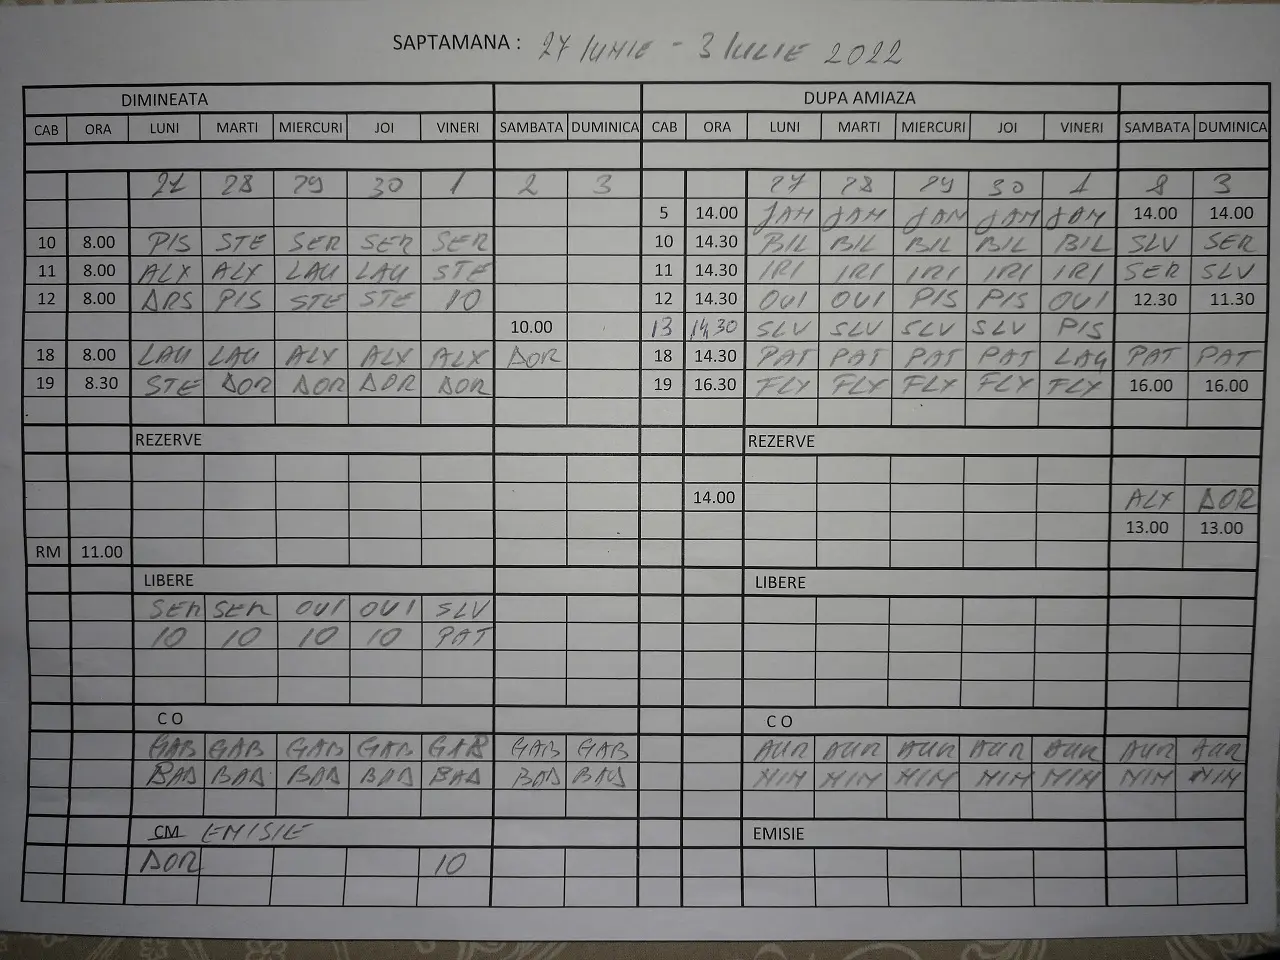 SAPTAMANA : 27 IUNIE - 3 IULIE 2022
DIMINEATA DUPA AMIAZA
CAB ORA LUNI MARTI MIERCURI JOI VINERI SAMBATA DUMINICA CAB ORA LUNI MARTI MIERCURI JOI VINERI SAMBATA DUMINICA
27 28 29 30 1 2 3 27 28 29 30 1 2 3
5 14.00 JAM JAM JAM JAM JAM 14.00 14.00
10 8.00 PIS STE SER SER SER 10 14.30 BIL BIL BIL BIL BIL SLV SER
11 8.00 ALX ALX LAU LAU STE 11 14.30 IRI IRI IRI IRI IRI SER SLV
12 8.00 ARS PIS STE STE IO 12 14.30 OVI OVI PIS PIS OVI 12.30 11.30
10.00 13 14,30 SLV SLV SLV SLV PIS
18 8.00 LAU LAU ALX ALX ALX DOR 18 14.30 PAT PAT PAT PAT LAU PAT PAT
19 8.30 STE DOR DOR DOR DOR 19 16.30 FLY FLY FLY FLY FLY 16.00 16.00
REZERVE REZERVE
14.00 ALX DOR
13.00 13.00
RM 11.00
LIBERE LIBERE
SER SER OVI OVI SLV
IO IO IO IO PAT
C O C O
GAB GAB GAB GAB GAB GAB GAB AUR AUR AUR AUR AUR AUR AUR
BAD BAD BAD BAD BAD BAD BAD MIM MIM MIM MIM MIM MIM MIM
CM EMISIE EMISIE
DOR IO